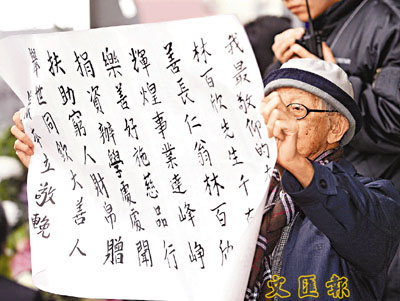 我最敬仰的
林百欣先生千
善長仁翁林百欣
輝煌事業達峰崢
樂善好施慈品行
捐資辦學處處聞
扶助窮人財帛贈
舉世同欽大善人
立敬輓
文匯報